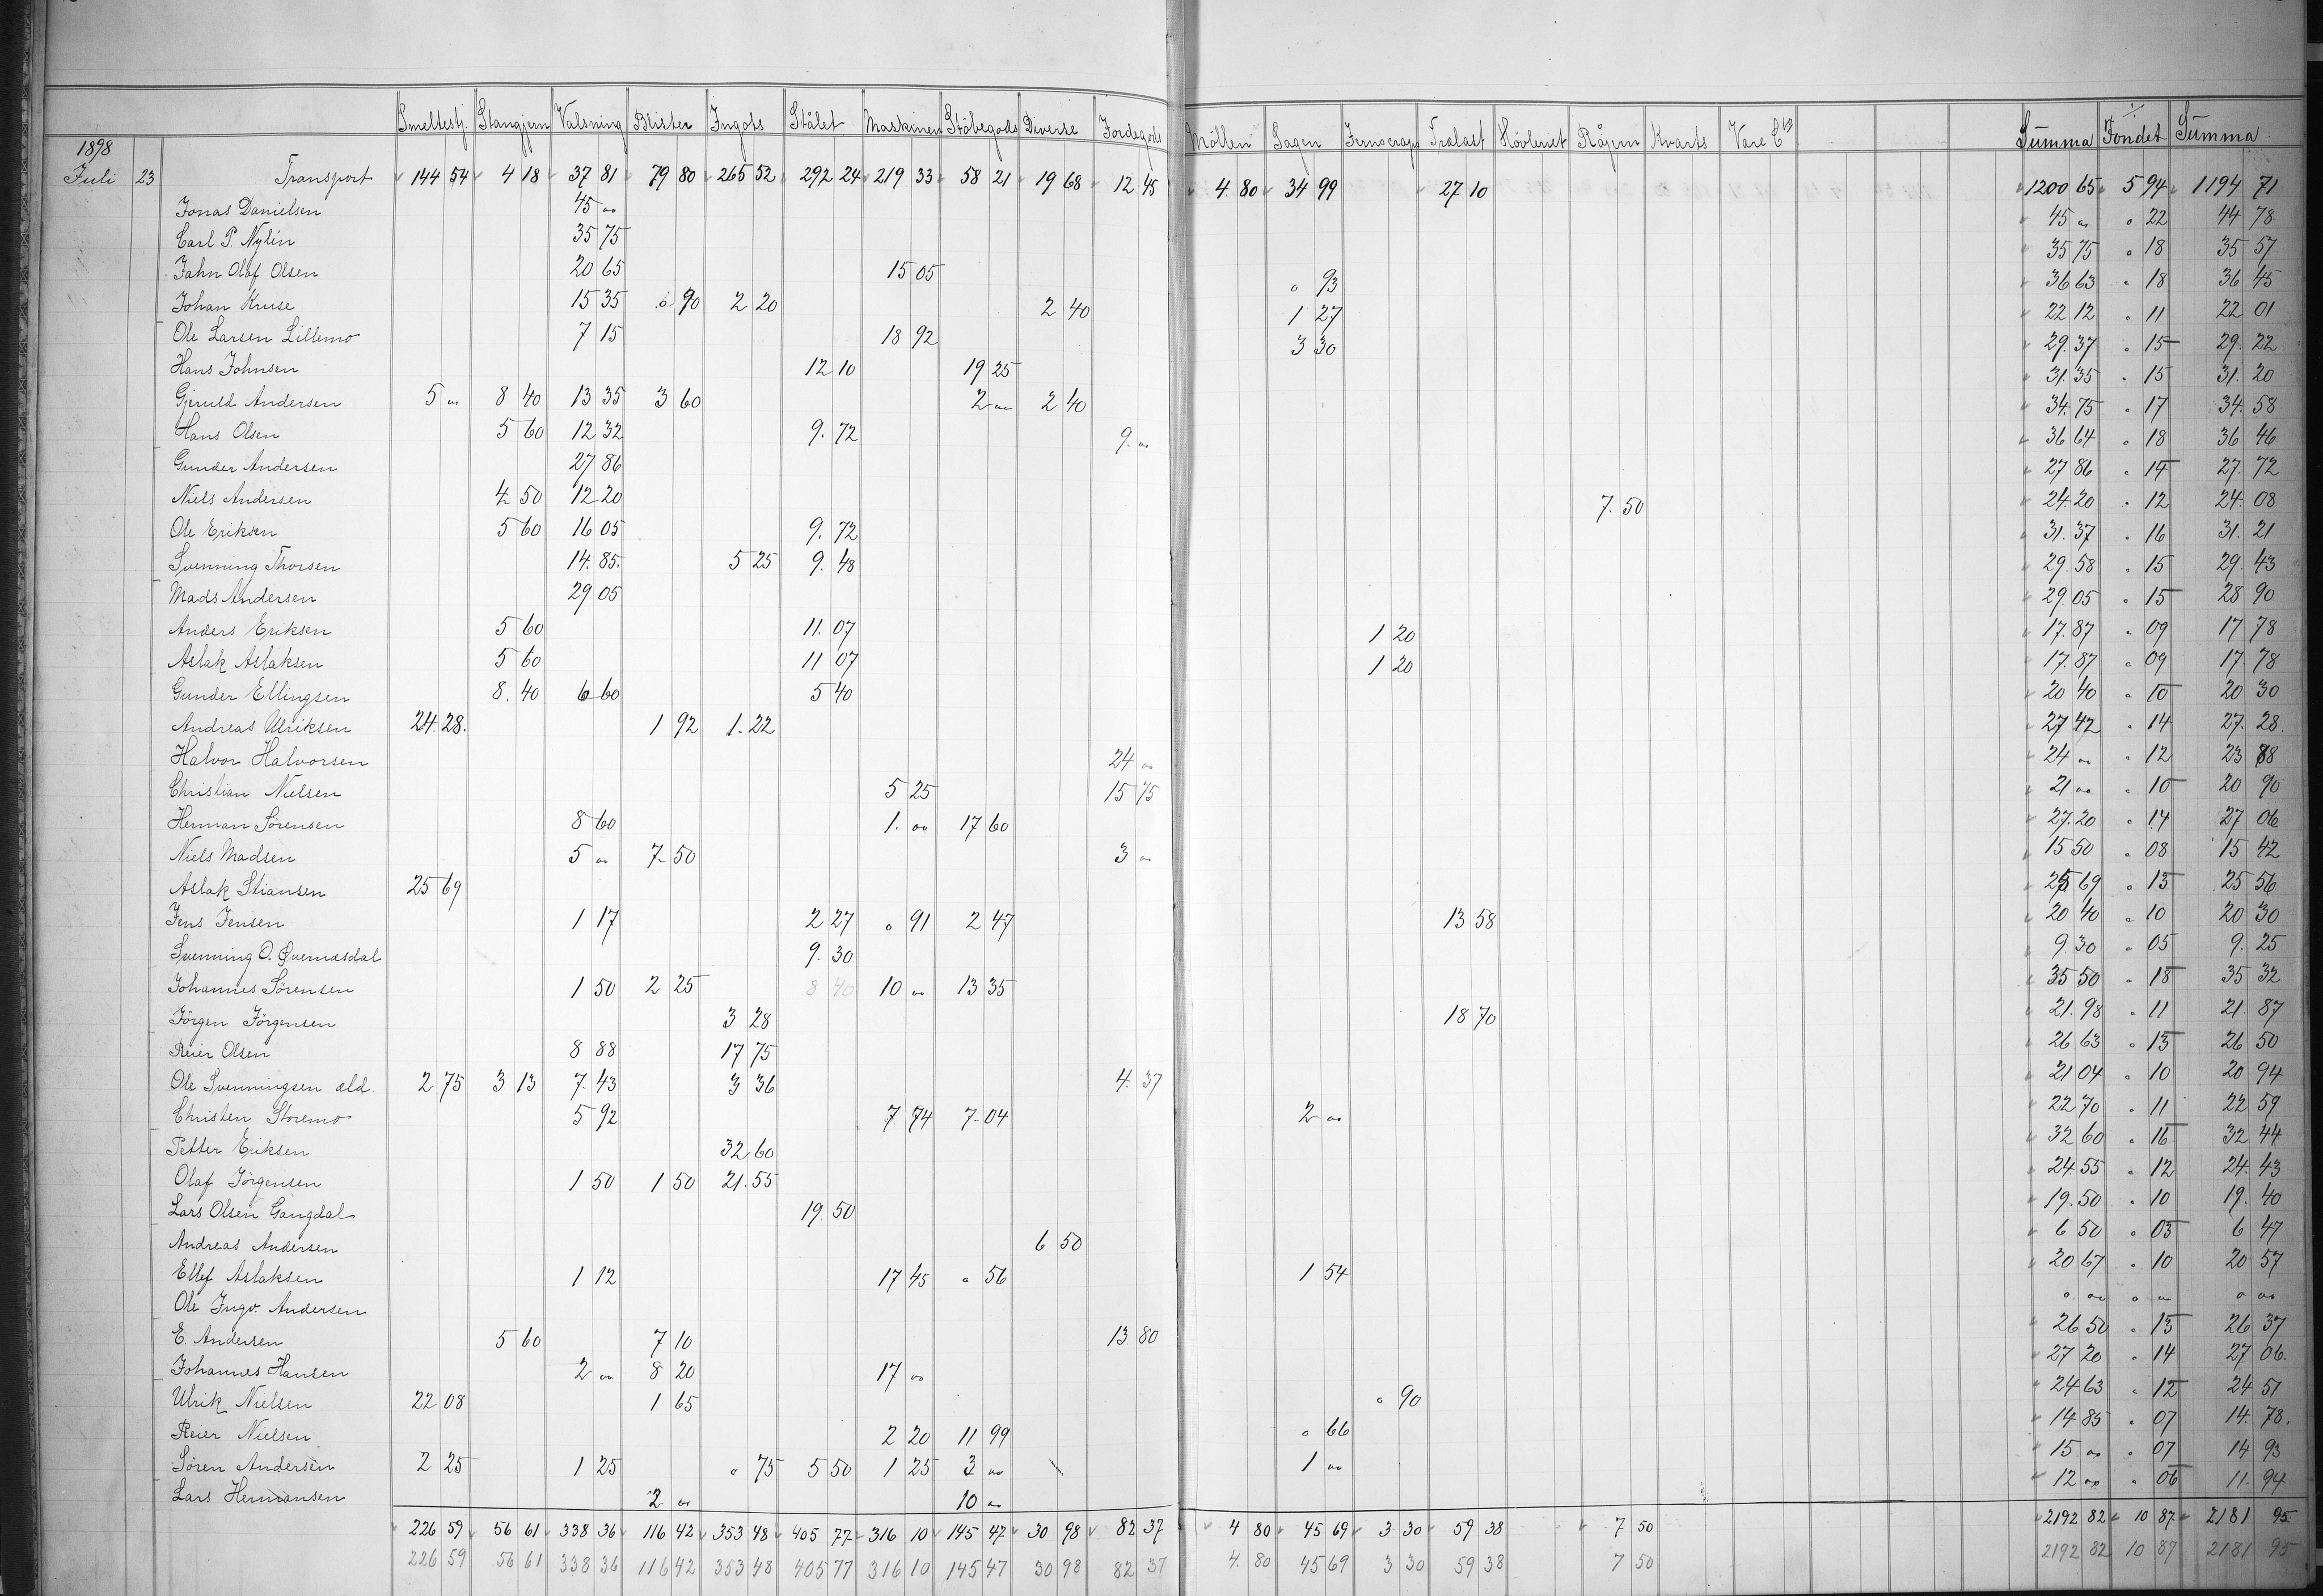 Smeltestj. Stangjern Valsning Blister Ingots Stålet Maskinen Støbegods Diverse Jordegods Möllen Sagen Jernscraps Tralast Hövleriet Råjern Kvarts Vare Cto Summa Fondet Summa
1898
Juli 23 Transport 144 54 4 18 37 81 79 80 265 52 292 24 219 33 58 21 19 68 12 45 4 80 34 99 27 10 1200 65 5 94 1194 71
Jonas Danielsen 45 " 45 " " 22 44 78
Carl P. Nylin 35 75 35 75 " 18 35 57
Jahn Olaf Olsen 20 65 15 05 " 93 36 63 " 18 36 45
Johan Kruse 15 35 " 90 2 20 2 40 1 27 22 12 " 11 22 01
Ole Larsen Lillemo 7 15 18 92 3 30 29 37 " 15 29 22
Hans Johnsen 12 10 19 25 31 35 " 15 31 20
Gjeruld Andersen 5 " 8 40 13 35 3 60 2 " 2 40 34 75 " 17 34 58
Hans Olsen 5 60 12 32 9 72 9 " 36 64 " 18 36 46
Gunder Andersen 27 86 27 86 " 14 27 72
Niels Andersen 4 50 12 20 7 50 24 20 " 12 24 08
Ole Eriksen 5 60 16 05 9 72 31 37 " 16 31 21
Svenning Thorsen 14 85 5 25 9 48 29 58 " 15 29 43
Mads Andersen 29 05 29 05 " 15 28 90
Anders Eriksen 5 60 11 07 1 20 17 87 " 09 17 78
Aslak Aslaksen 5 60 11 07 1 20 17 87 " 09 17 78
Gunder Ellingsen 8 40 6 60 5 40 20 40 " 10 20 30
Andreas Ulriksen 24 28 1 92 1 22 27 42 " 14 27 28
Halvor Halvorsen 24 " 24 " " 12 23 88
Christian Nielsen 5 25 15 75 21 " " 10 20 90
Herman Sørensen 8 60 1 " 17 60 27 20 " 14 27 06
Niels Madsen 5 " 7 50 3 " 15 50 " 08 15 42
Aslak Stiansen 25 69 25 69 " 13 25 56
Jens Jensen 1 17 2 27 " 91 2 47 13 58 20 40 " 10 20 30
Svenning O. Øvernæsdal 9 30 9 30 " 05 9 25
Johannes Sørensen 1 50 2 25 8 40 10 " 13 35 35 50 " 18 35 32
Jörgen Jörgensen 3 28 18 70 21 98 " 11 21 87
Reier Olsen 8 88 17 75 26 63 " 13 26 50
Ole Svenningsen æld 2 75 3 13 7 43 3 36 4 37 21 04 " 10 20 94
Christen Storemo 5 92 7 74 7 04 2 " 22 70 " 11 22 59
Petter Eriksen 32 60 32 60 " 16 32 44
Olaf Jörgensen 1 50 1 50 21 55 24 55 " 12 24 43
Lars Olsen Gangdal 19 50 19 50 " 10 19 40
Andreas Andersen 6 50 6 50 " 03 6 47
Ellef Aslaksen 1 12 17 45 " 56 1 54 20 67 " 10 20 57
Ole Ingv. Andersen " " " " " "
E. Andersen 5 60 7 10 13 80 26 50 " 13 26 37
Johannes Hansen 2 " 8 20 17 " 27 20 " 14 27 06
Ulrik Nielsen 22 08 1 65 " 90 24 63 " 12 24 51
Reier Nielsen 2 20 11 99 " 66 14 85 " 07 14 78
Sören Andersen 2 25 1 25 " 75 5 50 1 25 3 " 1 " 15 " " 07 14 93
Lars Hermansen 2 " 10 " 12 " " 06 11 94
226 59 56 61 338 36 116 42 353 48 405 77 316 10 145 47 30 98 82 37 4 80 45 69 3 30 59 38 7 50 2192 82 10 87 2181 95
226 59 56 61 338 36 116 42 353 48 405 77 316 10 145 47 30 98 82 37 4 80 45 69 3 30 59 38 7 50 2192 82 10 87 2181 95